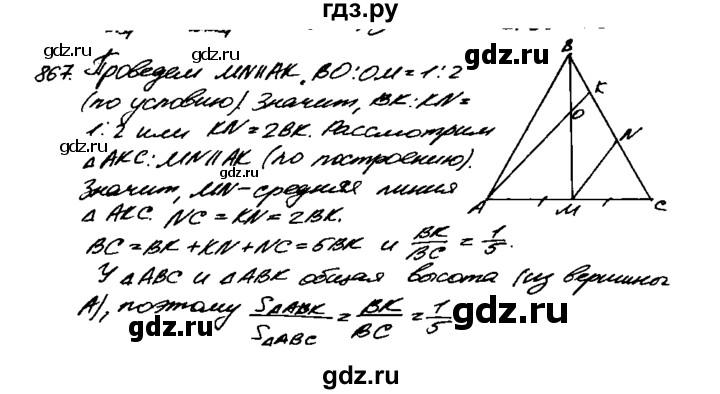 гдз.ру
gdz.ru
gdz.ru
867. Проведем MN||AK. BO:OM=1:2
(по условию). Значит, BK:KN=
1:2 или KN=2BK. Рассмотрим
△AKC: MN||AK (по построению).
Значит, MN – средняя линия
△AKC. NC=KN=2BK.
BC=BK+KN+NC=5BK и BK/BC=1/5.
У △ABC и △ABK общая высота (из вершины
A), поэтому S△ABK/S△ABC=BK/BC=1/5
B
K
O
N
A
M
C
gdz.ru
gdz.ru
gdz.ru
gdz.ru
gdz.ru
gdz.ru
gdz.ru
gdz.ru